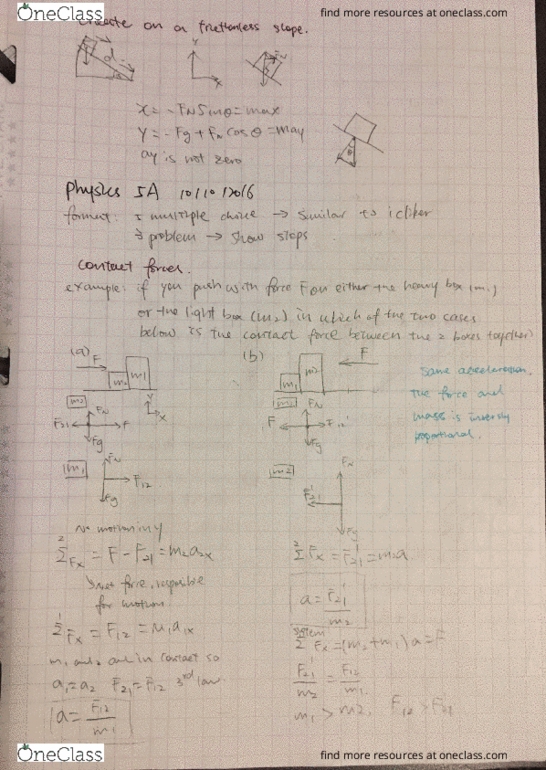 OneClass
find more resources at oneclass.com
on a frictionless slope.
y
x
x = -FN Sinθ = max
y = -Fg + FN cosθ = may
ay is not zero
Physics 5A 10/10/2016
format: multiple choice → similar to iclicker
problem → show steps
contact forces.
example: if you push with force F on either the heavy box (m1)
or the light box (m2) in which of the two cases
below is the contact force between the 2 boxes together)
(a) F
m2 m1
(b) F
m1 m2
same acceleration.
the force and
mass is inversly
proportional.
m2
FN
F21 F
Fg
y
x
m1
FN
F12
Fg
FN
F F12'
Fg
m2
F21'
Fg
No motion in y
Σ2 Fx = F - F21 = m2a2x
net force, responsible
for motion
Σ1 Fx = F12 = m1a1x
m1 and m2 are in contact so
a1 = a2 F21 = F12 3rd law
a = F12/m1
Σ2 Fx = F21' = m2a
a = F21'/m2
system
Σ Fx = (m2+m1)a = F
F21'/m2 = F12/m1
m1 > m2, F12 > F21
OneClass
find more resources at oneclass.com